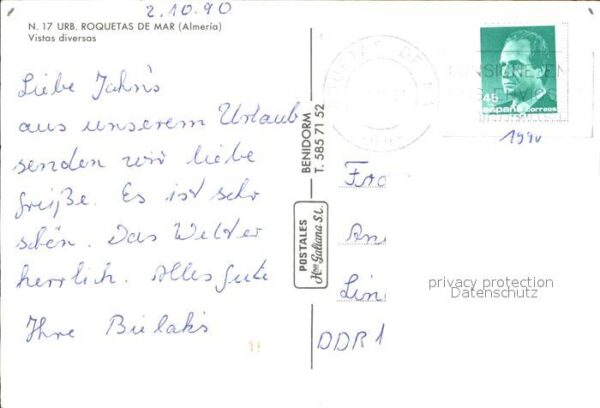 2.10.90
N. 17 URB. ROQUETAS DE MAR (Almería)
Vistas diversas
Liebe Jahn's
aus unserem Urlaub
senden wir liebe
Grüße. Es ist sehr
schön. Das Wetter
herrlich. Alles Gute
Ihre Bielak's
BENIDORM
T. 585 71 52
POSTALES
Hnos Galiana S.L.
45
españa correos
1990
Lin
DDR 1
privacy protection
Datenschutz